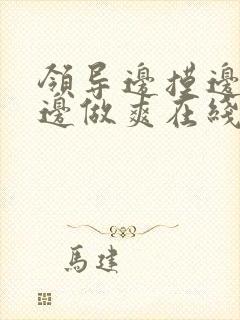 領导邊摸邊
邊做爽在綫
馬建